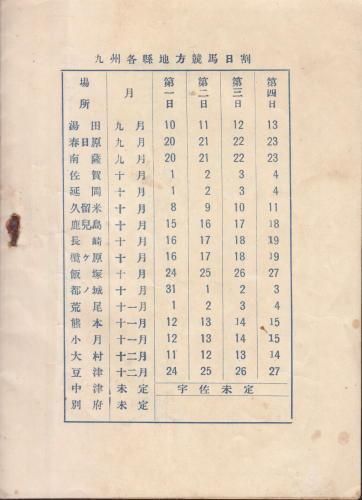 九州各縣地方競馬日割
場所 月 第一日 第二日 第三日 第四日
湯田 九月 10 11 12 13
春日原 九月 20 21 22 23
南薩 九月 20 21 22 23
佐賀 十月 1 2 3 4
延岡 十月 1 2 3 4
久留米 十月 8 9 10 11
鹿兒島 十月 15 16 17 18
長崎 十月 16 17 18 19
ヶ原 十月 16 17 18 19
飯塚 十月 24 25 26 27
都ノ城 十月 31 1 2 3
荒尾 十一月 1 2 3 4
熊本 十一月 12 13 14 15
小月 十一月 12 13 14 15
大村 十二月 11 12 13 14
豆津 十二月 24 25 26 27
中津 未定 宇佐未定
別府 未定